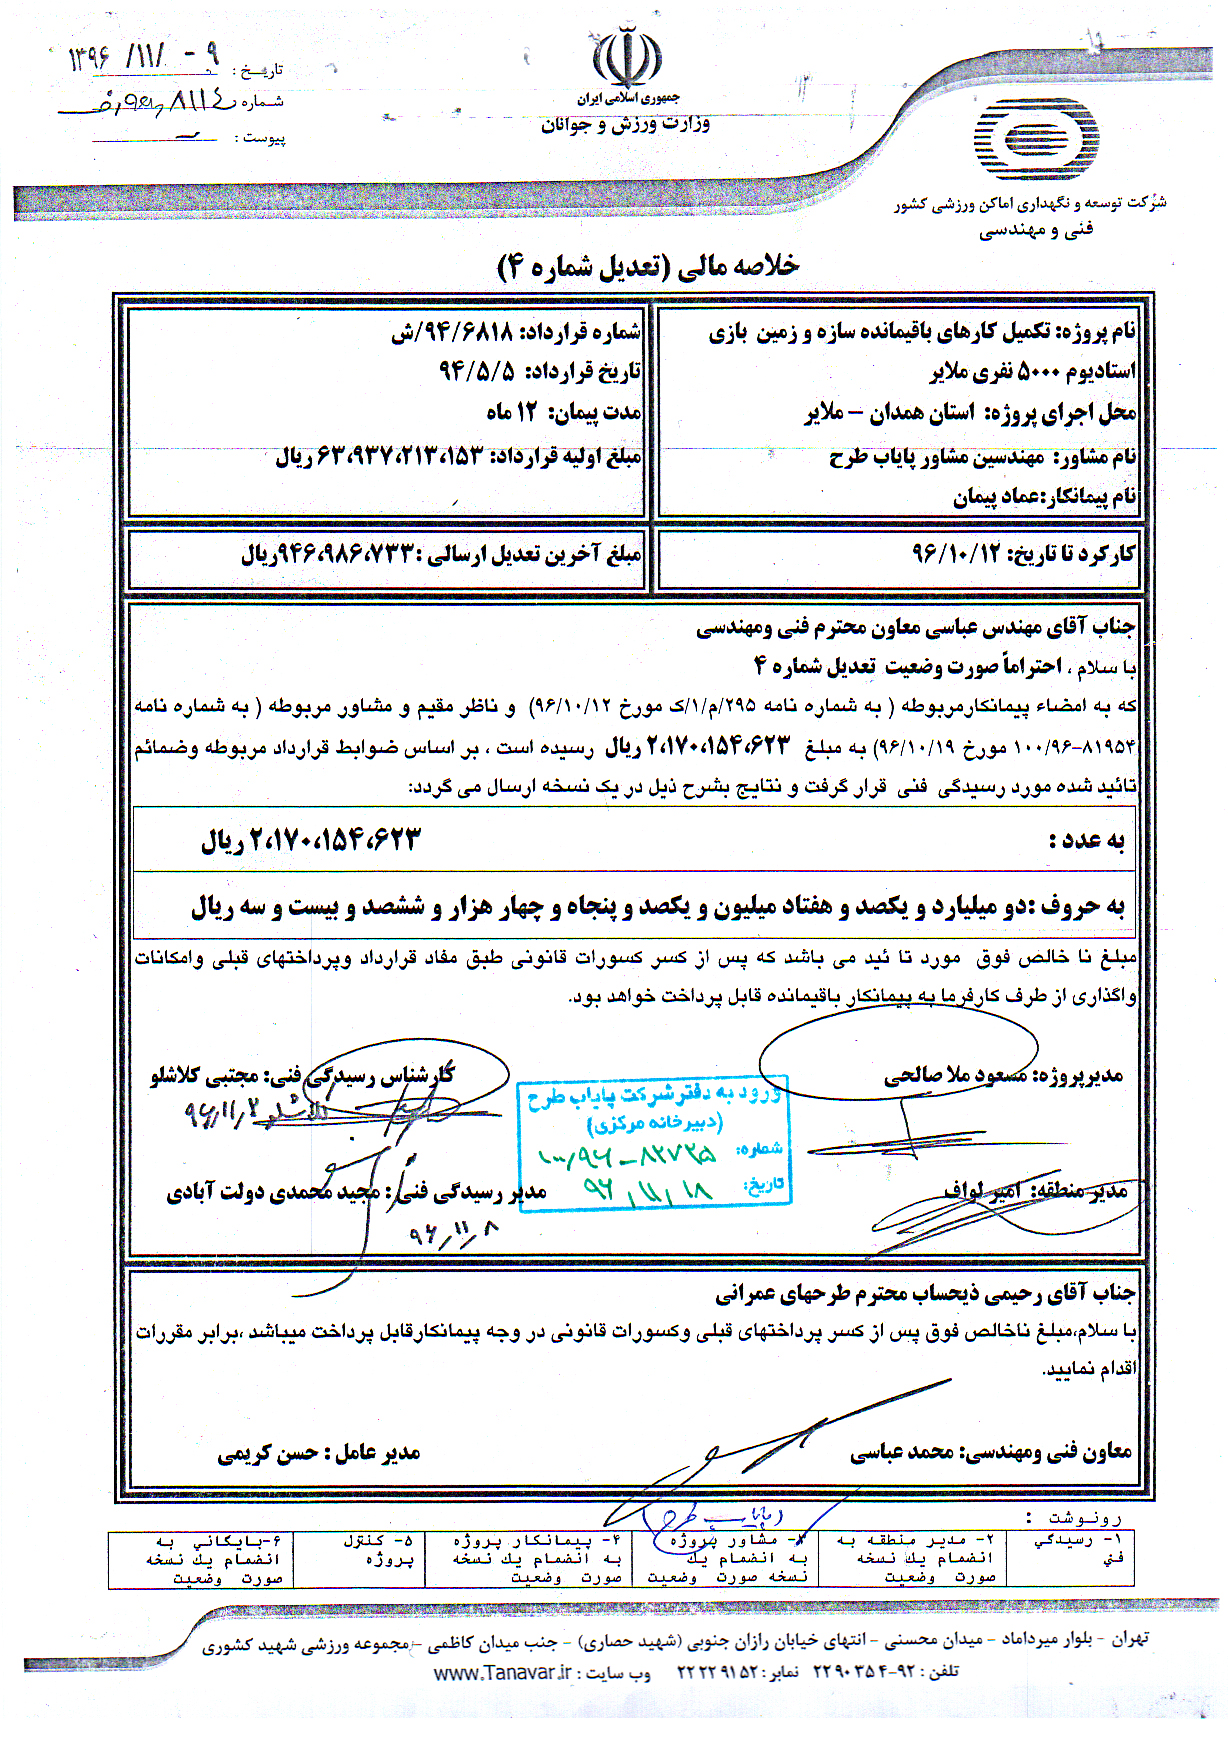 تاریخ : ۱۳۹۶/۱۱/۰۹
شماره
پیوست : -
جمهوری اسلامی ایران
وزارت ورزش و جوانان
شرکت توسعه و نگهداری اماکن ورزشی کشور
فنی و مهندسی
خلاصه مالی (تعدیل شماره ۴)
نام پروژه: تکمیل کارهای باقیمانده سازه و زمین بازی
استادیوم ۵۰۰۰ نفری ملایر
محل اجرای پروژه: استان همدان – ملایر
نام مشاور: مهندسین مشاور پایاب طرح
نام پیمانکار:عماد پیمان
شماره قرارداد: ۹۴/۶۸۱۸/ش
تاریخ قرارداد: ۹۴/۵/۵
مدت پیمان: ۱۲ ماه
مبلغ اولیه قرارداد: ۶۳،۹۳۷،۲۱۳،۱۵۳ ریال
کارکرد تا تاریخ: ۹۶/۱۰/۱۲
مبلغ آخرین تعدیل ارسالی :۹۴۶،۹۸۶،۷۳۳ریال
جناب آقای مهندس عباسی معاون محترم فنی ومهندسی
با سلام ، احتراماً صورت وضعیت تعدیل شماره ۴
که به امضاء پیمانکارمربوطه ( به شماره نامه ۲۹۵/م/۱/ک مورخ ۹۶/۱۰/۱۲) و ناظر مقیم و مشاور مربوطه ( به شماره نامه
۱۰۰/۹۶-۸۱۹۵۴ مورخ ۹۶/۱۰/۱۹) به مبلغ ۲،۱۷۰،۱۵۴،۶۲۳ ریال رسیده است ، بر اساس ضوابط قرارداد مربوطه وضمائم
تائید شده مورد رسیدگی فنی قرار گرفت و نتایج بشرح ذیل در یک نسخه ارسال می گردد:
به عدد : ۲،۱۷۰،۱۵۴،۶۲۳ ریال
به حروف :دو میلیارد و یکصد و هفتاد میلیون و یکصد و پنجاه و چهار هزار و ششصد و بیست و سه ریال
مبلغ نا خالص فوق مورد تا ئید می باشد که پس از کسر کسورات قانونی طبق مفاد قرارداد وپرداختهای قبلی وامکانات
واگذاری از طرف کارفرما به پیمانکار باقیمانده قابل پرداخت خواهد بود.
مدیرپروژه: مسعود ملا صالحی
کارشناس رسیدگی فنی: مجتبی کلاشلو
ورود به دفترشرکت پایاب طرح
(دبیرخانه مرکزی)
شماره: ۱۰۰/۹۶-۸۲۷۲۵
تاریخ: ۹۶/۱۱/۱۸
مدیر منطقه: امیر لواف
مدیر رسیدگی فنی : مجید محمدی دولت آبادی
۹۶/۱۱/۸
جناب آقای رحیمی ذیحساب محترم طرحهای عمرانی
با سلام،مبلغ ناخالص فوق پس از کسر پرداختهای قبلی وکسورات قانونی در وجه پیمانکارقابل پرداخت میباشد ،برابر مقررات
اقدام نمایید.
معاون فنی ومهندسی: محمد عباسی
مدیر عامل : حسن کریمی
رونوشت :
پایاب طرح
۱- رسیدگی فنی
۲- مدیر منطقه به انضمام یك نسخه صورت وضعیت
۳- مشاور پروژه به انضمام یك نسخه صورت وضعیت
۴- پیمانکار پروژه به انضمام یك نسخه صورت وضعیت
۵- کنترل پروژه
۶-بایگانی به انضمام یك نسخه صورت وضعیت
تهران - بلوار میرداماد - میدان محسنی - انتهای خیابان رازان جنوبی (شهید حصاری) - جنب میدان کاظمی -مجموعه ورزشی شهید کشوری
تلفن : ۹۲-۲۲۹۰۳۵۴ نمابر : ۲۲۲۲۹۱۵۲ وب سایت : www.Tanavar.ir